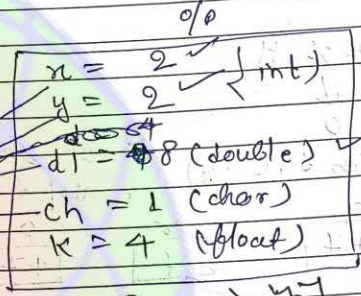 o/p
x = 2 } int)
y = 2
d1 = 8 (double)
ch = 1 (char)
k = 4 (float)